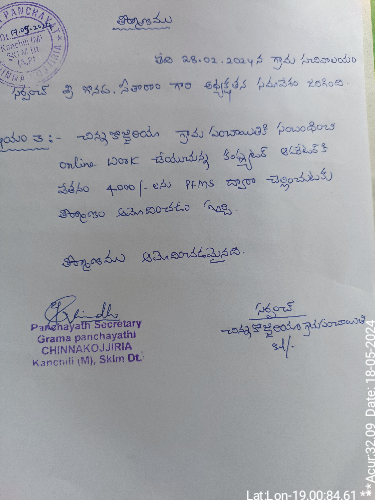 PANCHAYAT
Dt 17.05.2024
Kanchili (M)
Sklm Dt
తీర్మానము
తేది 28.02.2024న గ్రామ సచివాలయం
సర్పంచ్ శ్రీ సీతారాం గారి అధ్యక్షతన సమావేశం జరిగింది.
:- చిన్నకొజ్జిరియా గ్రామ పంచాయితీకి సంబంధించి
online work చేయుచున్న కంప్యూటర్ ఆపరేటర్‌కి
వేతనం 4,000/- లను PFMS ద్వారా చెల్లించుటకు
తీర్మానం ఆమోదించడం
తీర్మానము ఆమోదించడమైనది.
Panchayath Secretary
Grama panchayathi
CHINNAKOJJIRIA
Kanchili (M), Sklm Dt.
సర్పంచ్
చిన్నకొజ్జిరియా గ్రామపంచాయితి
sd/-
Lat:Lon-19.00:84.61 **Acur:32.09 Date: 18-05-2024